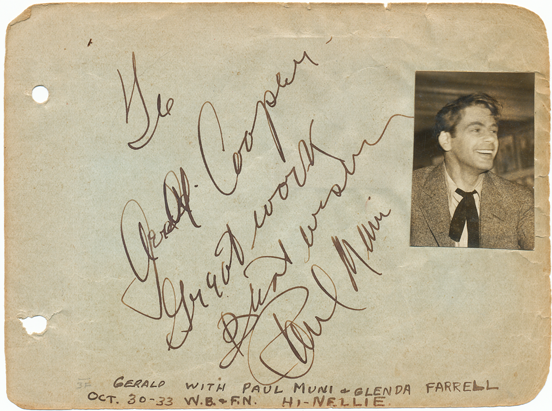 To
Gerald. Cooper.
Great work
Best wishes
Paul Muni
GERALD WITH PAUL MUNI & GLENDA FARRELL
OCT. 30-33 W.B. & F.N. HI-NELLIE